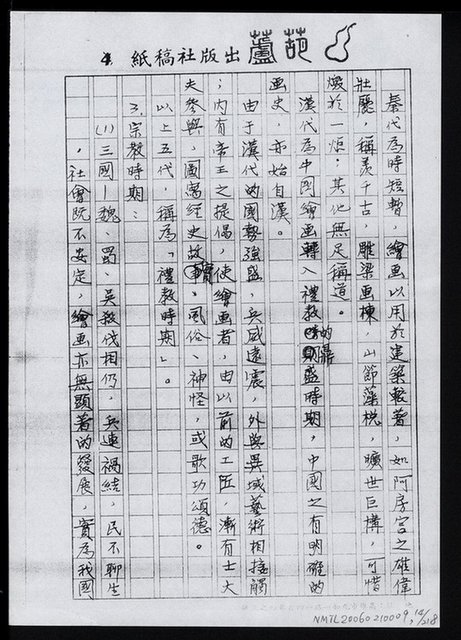 4. 紙稿社版出蘆葩
秦代為時短暫，繪画以用於建築較著，如阿房宮之雄偉
壯麗，稱羨千古，雕梁画棟，山節藻梲，曠世巨構，可惜
燬於一炬；其他無足稱道。
漢代為中國繪画轉入禮教的鼎盛時期，中國之有明確的
画史，亦始自漢。
由于漢代的國勢強盛，兵威遠震，外與異域藝術相接觸
；內有帝王之提倡，使繪画者，由以前的工匠，漸有士大
夫參與，圖寫經史故實、風俗、神怪，或歌功頌德。
以上五代，稱為「禮教時期」。
3.宗教時期：
(1)三國—魏、蜀、吳殺伐相仍，兵連禍結，民不聊生
，社會既不安定，繪画亦無顯著的發展，實為我國
NMTL20060210009, 14/218